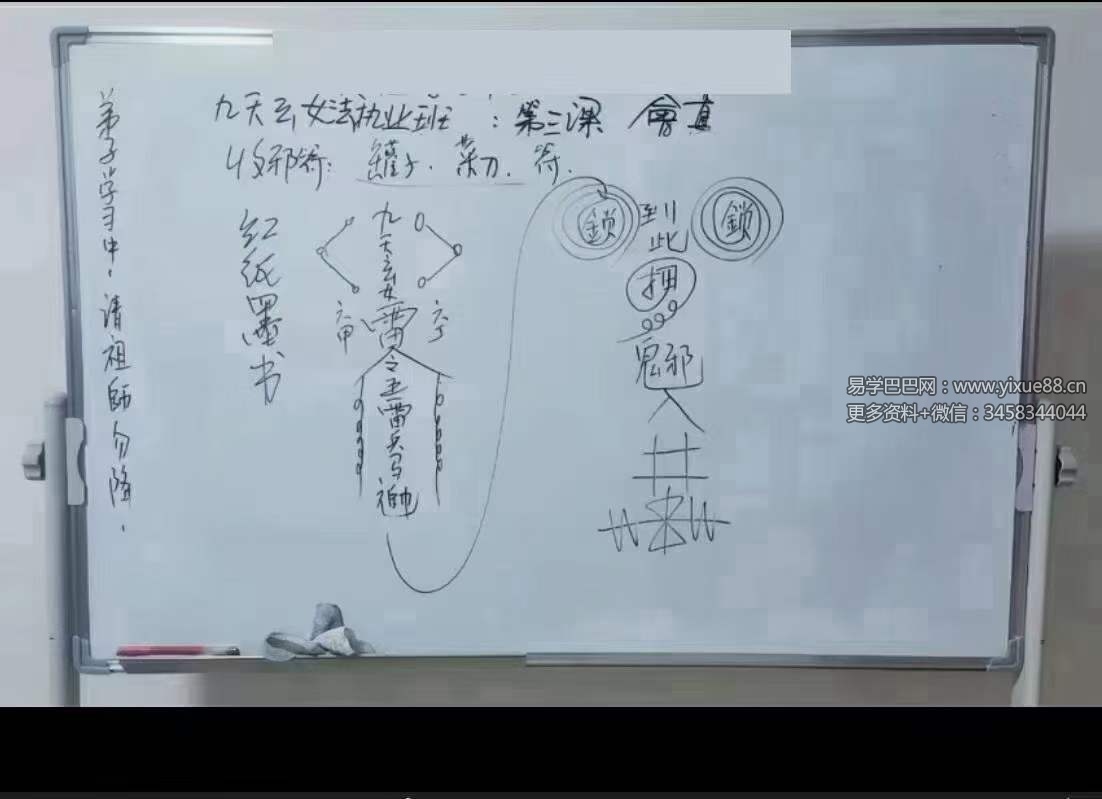 九天玄女法执业班：第三课 會真
收邪符：罐子．菜刀．符．
弟子学习中，请祖師勿降．
红纸墨书
九天玄女
雷
六甲
六丁
令
主雷兵马
帥
鎖
到此
鎖
押
鬼邪
入
井
易学巴巴网：www.yixue88.cn
更多资料+微信：3458344044